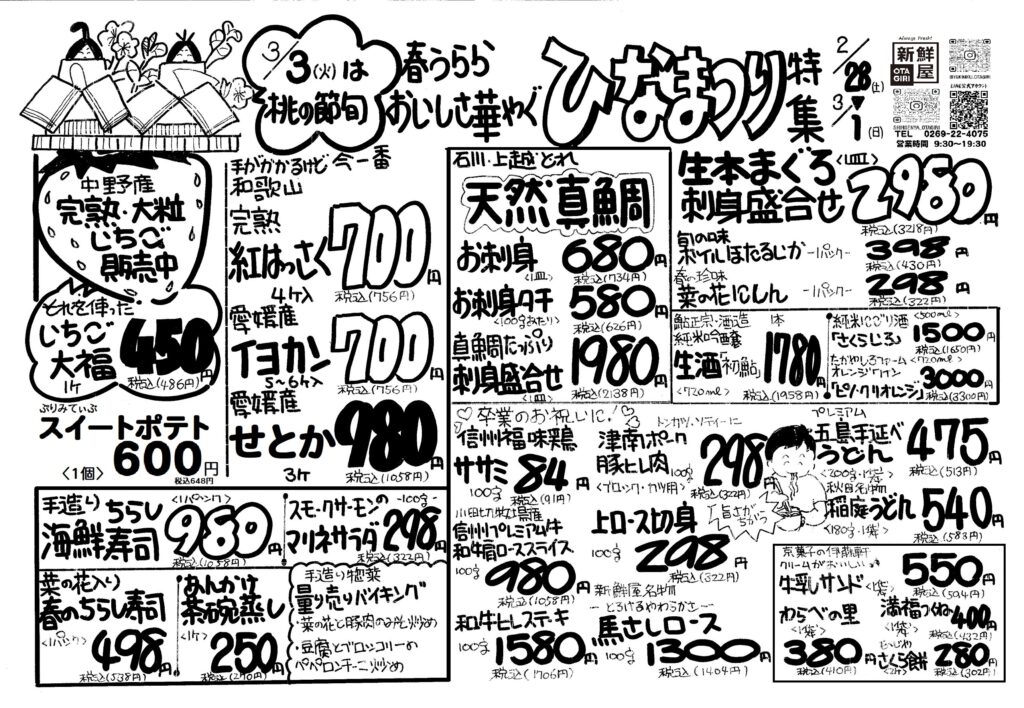 3/3(火)は
桃の節旬
春うらら
おいしさ華やぐ
ひなまつり
特集
2/28(土)
▼
3/1(日)
Always Fresh!
新鮮屋
OTAGIRI
LINE公式アカウント
TEL 0269-22-4075
営業時間 9:30～19:30
中野産
完熟・大粒
いちご
販売中
それを使った
いちご
大福
1ケ
450円
税込(486円)
ぷりみてぃぶ
スイートポテト
〈1個〉
600円
税込648円
手がかかるけど 今一番
和歌山
完熟
紅はっさく
4ケ入
700円
税込(756円)
愛媛産
イヨカン
5~6ケ入
700円
税込(756円)
愛媛産
せとか
3ケ
980円
税込(1058円)
石川・上越どれ
天然真鯛
お刺身
〈1皿〉
680円
税込(734円)
お刺身タチ
〈100gあたり〉
580円
税込(626円)
真鯛たっぷり
刺身盛合せ
〈1皿〉
1980円
税込(2138円)
生本まぐろ
刺身盛合せ
〈1皿〉
2980円
税込(3218円)
旬の味
ボイルほたるいか
-1パック-
398円
税込(430円)
春の珍味
菜の花にしん
-1パック-
298円
税込(322円)
鮎正宗・酒造
純米吟醸
生酒「初鮎」
1本
〈720ml〉
1780円
税込(1958円)
純米にごり酒
〈500ml〉
「さくらじろ」
1500円
税込(1650円)
たかやしろファーム
〈720ml〉
オレンジワイン
「ピノ・クリオレンジ」
3000円
税込(3300円)
♡卒業のお祝いに!♡
信州福味鶏
ササミ
100g
84円
税込(91円)
小田切牧場産
信州プレミアム牛
和牛肩ローススライス
100g
980円
税込(1058円)
和牛ヒレステーキ
100g
1580円
税込(1706円)
トンカツ、ソティーに
津南ポーク
豚ヒレ肉
100g
〈ブロック・カツ用〉
298円
税込(322円)
上ロース切身
100g
298円
税込(322円)
新鮮屋名物
-とろけるやわらかさ-
馬さしロース
100g
1300円
税込(1404円)
旨さがちがう
プレミアム
五島手延べ
うどん
〈200g・1袋〉
475円
税込(513円)
秋田名物
稲庭うどん
〈180g・1袋〉
540円
税込(583円)
手造り
ちらし
海鮮寿司
〈1パック〉
980円
税込(1058円)
スモークサーモンの
マリネサラダ
-100g-
298円
税込(322円)
菜の花入り
春のちらし寿司
〈1パック〉
498円
税込(538円)
あんかけ
茶碗蒸し
〈1ケ〉
250円
税込(270円)
手造り惣菜
量り売りバイキング
・菜の花と豚肉のみそ炒め
・豆腐とブロッコリーの
ペペロンチーニ炒め
京菓子の伊藤軒
クリームがおいしい
牛乳サンド
〈1袋〉
550円
税込(594円)
わらべの里
〈1袋〉
380円
税込(410円)
満福つくね
〈1袋〉
400円
税込(432円)
さくら餅
〈2ケ〉
280円
税込(302円)